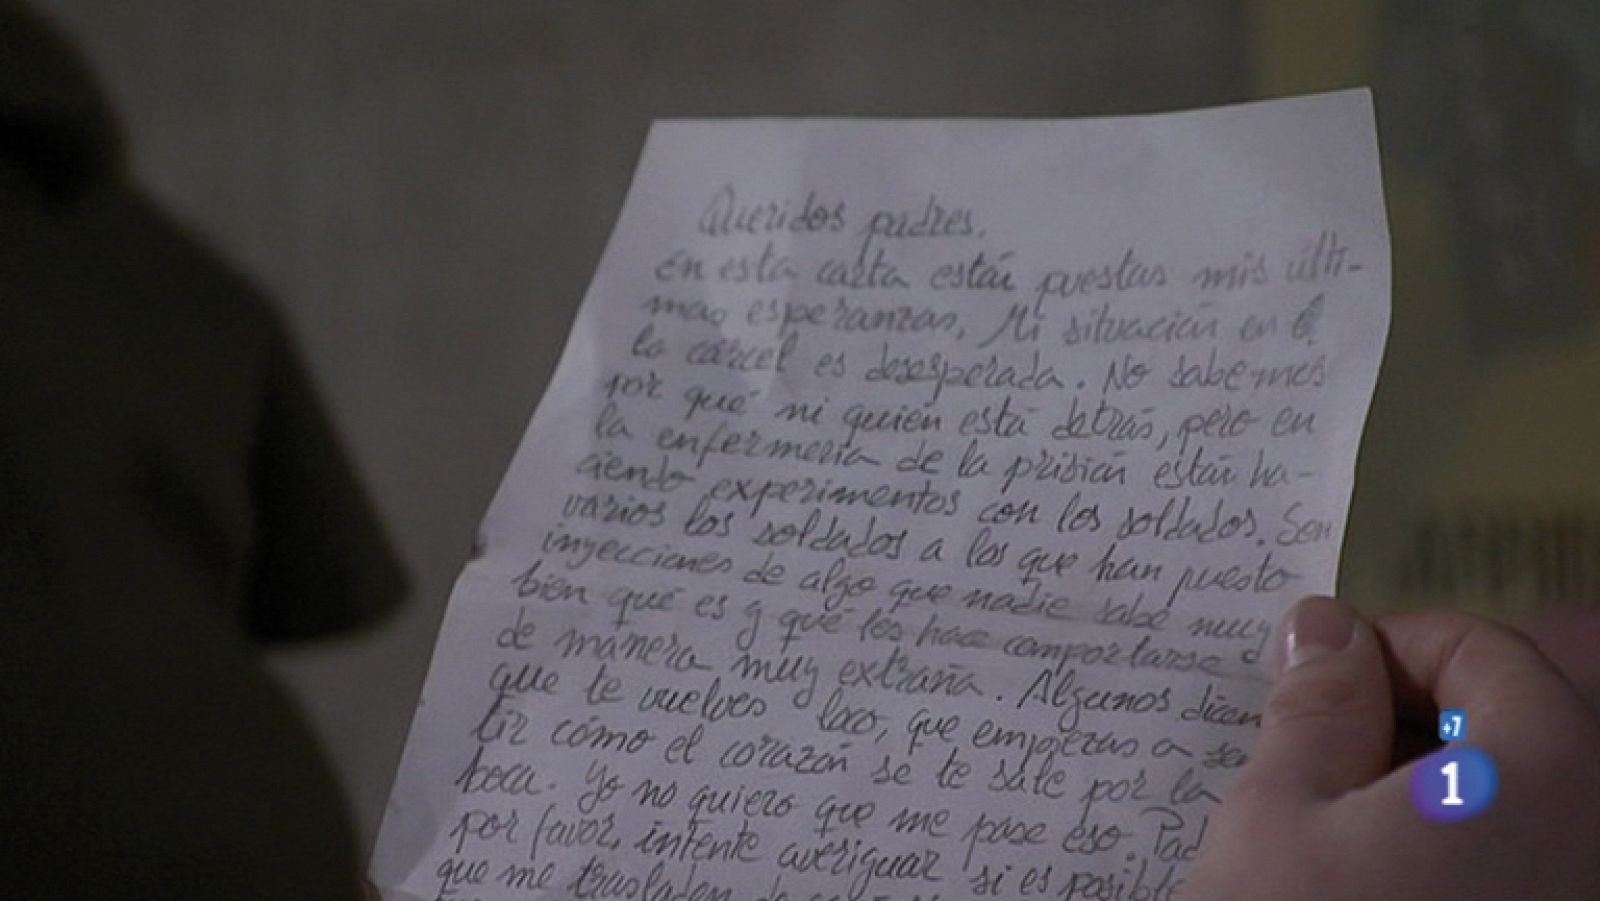 Queridos padres.
En esta carta están puestas mis últi-
mas esperanzas. Mi situación en
la cárcel es desesperada. No sabemos
por qué ni quién está detrás, pero en
la enfermería de la prisión están ha-
ciendo experimentos con los soldados. Son
varios los soldados a los que han puesto
inyecciones de algo que nadie sabe muy
bien qué es y qué les hace comportarse
de manera muy extraña. Algunos dicen
que te vuelves loco, que empiezas a sen
tir cómo el corazón se te sale por la
boca. Yo no quiero que me pase eso. Pad
por favor, intente averiguar si es posible
que me trasladen de
+7
1